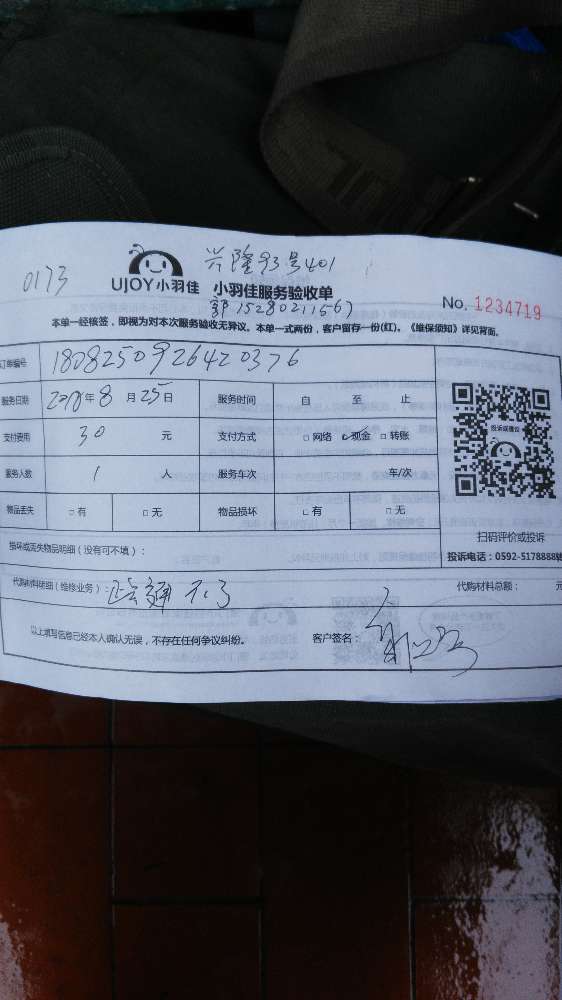 兴隆93号401
0173
UJOY小羽佳 小羽佳服务验收单
No. 1234719
郭15280211567
本单一经核签，即视为对本次服务验收无异议。本单一式两份，客户留存一份(红)。《维保须知》详见背面。
订单编号 1808250926420376
服务日期 2018年8月25日 服务时间 自 至 止
支付费用 30 元 支付方式 □网络 ☑现金 □转账
投诉或建议
服务人数 1 人 服务车次 车/次
物品丢失 □有 □无 物品损坏 □有 □无
扫码评价或投诉
损坏或丢失物品明细（没有可不填）：
投诉电话：0592-5178888转
代购材料明细(维修业务)： 不了
代购材料总额： 元
以上填写信息已经本人确认无误，不存在任何争议纠纷。 客户签名：